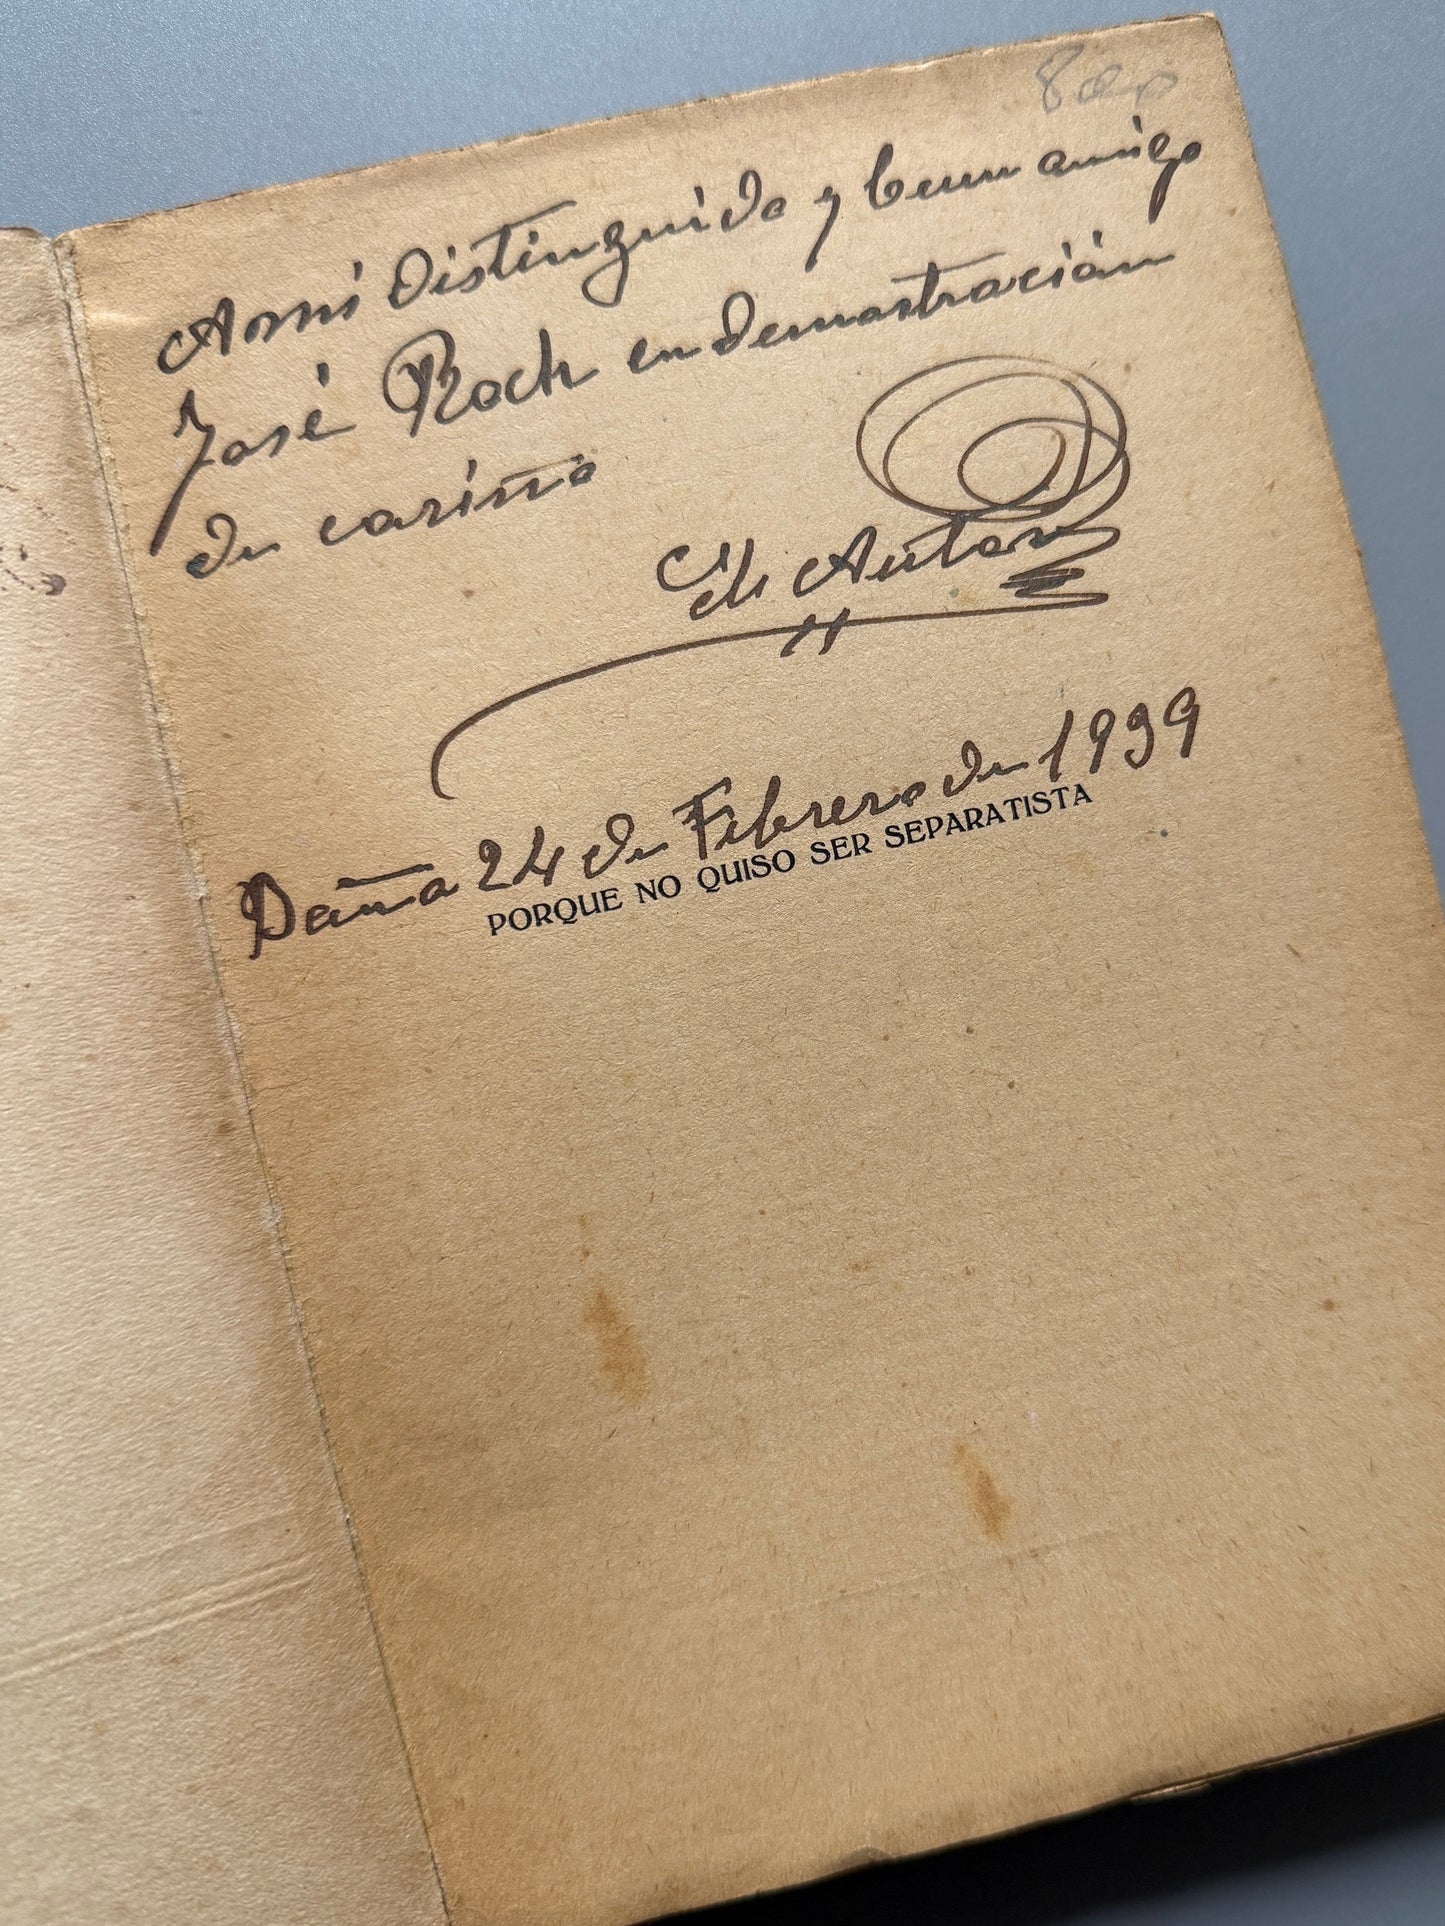 A mi Distinguido y buen amigo
José Roch en demostración
de cariño
El Autor
24 de Febrero de 1939
PORQUE NO QUISO SER SEPARATISTA